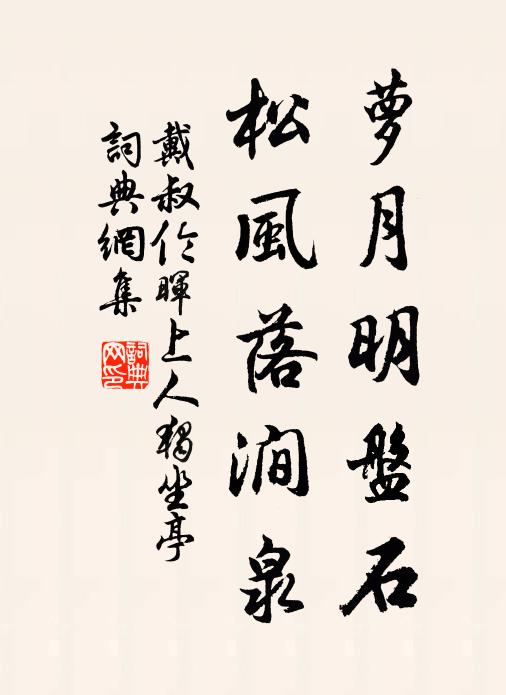 萝月明盤石
松風落澗泉
戴叔伦暉上人獨坐亭
詞典網集
詞典网印